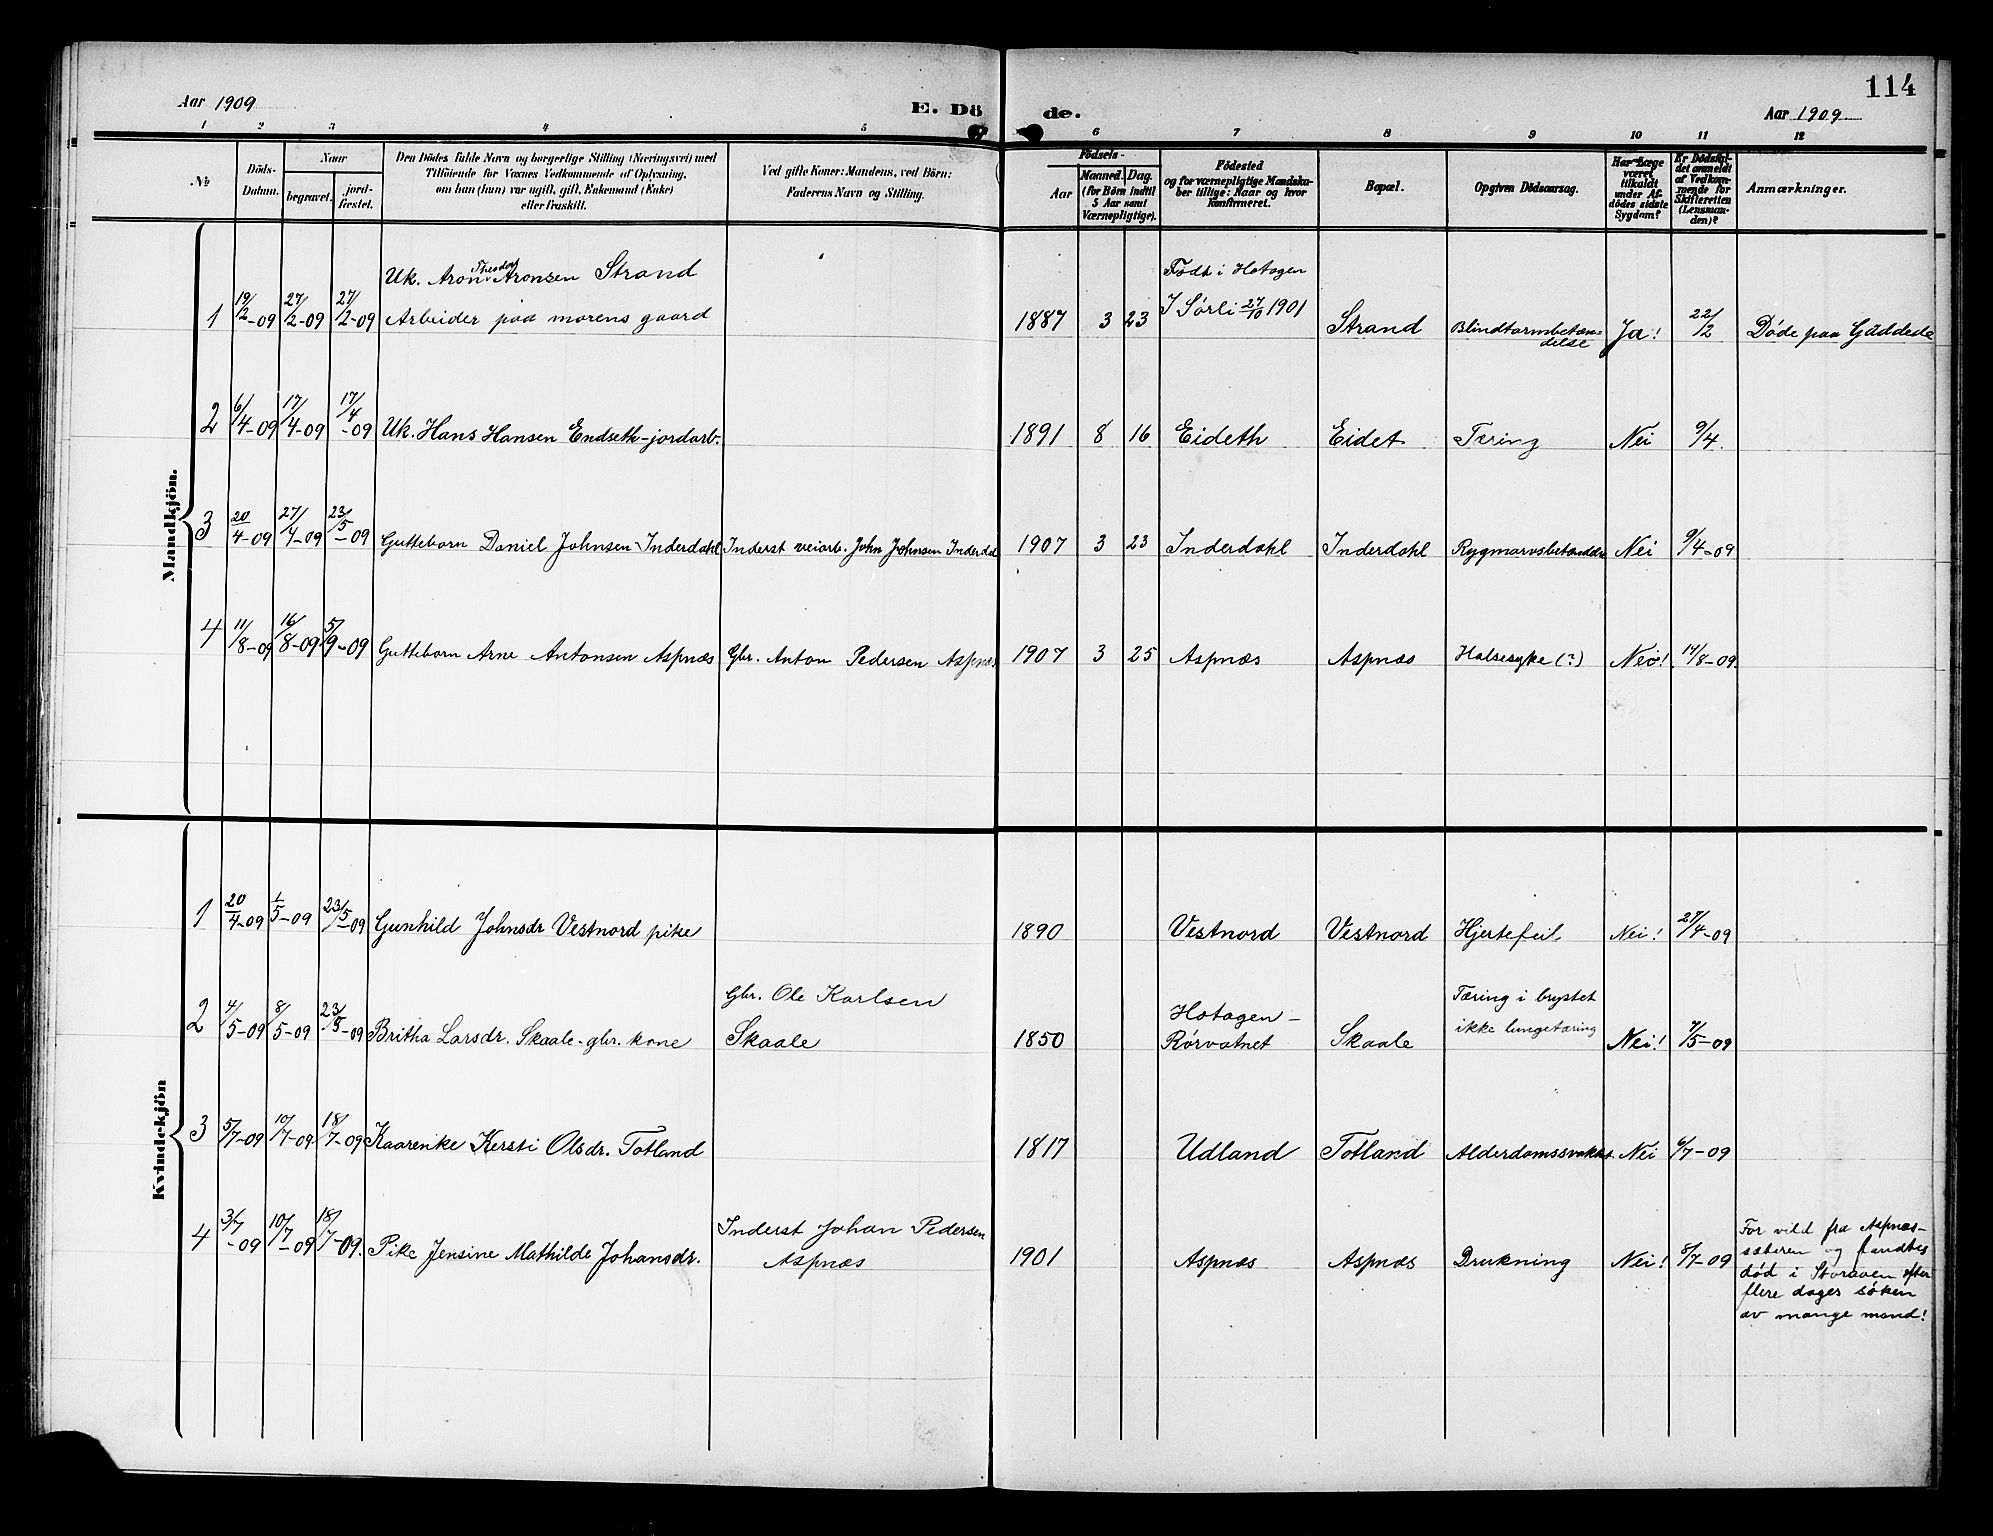 114
Aar 1909
E. Dö de.
Aar 1909
1 2 3 4 5 6 7 8 9 10 11 12
№
Döds-Datum.
Naar
begravet.
jord-fæstet.
Den Dödes fulde Navn og borgerlige Stilling (Næringsvei) med
Tilföiende for Voxnes Vedkommende af Oplysning,
om han (hun) var ugift, gift, Enkemand (Enke)
eller fraskilt.
Ved gifte Koner: Mandens, ved Börn:
Faderens Navn og Stilling.
Födsels-
Aar
Maaned. Dag.
(for Börn indtil
5 Aar samt
Værnepligtige).
Födested
og for værnepligtige Mandska-
ber tillige: Naar og hvor
konfirmeret.
Bopæl.
Opgiven Dödsaarsag.
Har Læge
været
tilkaldt
under Af-
dödes sidste
Sygdom?
Er Dödsfal-
det anmeldt
af Vedkom-
mende for
Skifteretten
(Lensman-
den)?
Anmærkninger.
Mandkjön.
Uk. Aron Theodor Aronsen Strand
Födt i Hotagen
1 19/2-09 27/2-09 27/2-09 Arbeider paa morens gaard 1887 3 23 I Sørli 27/10 1901 Strand Blindtarmbetæn-
delse Ja! 22/2 Døde paa Gäddede
2 6/4-09 17/4-09 17/4-09 Uk. Hans Hansen Endseth-jordarb. 1891 8 16 Eideth Eidet Tæring Nei 9/4.
3 20/4-09 27/4-09 23/5-09 Guttebarn Daniel Johnsen Inderdahl Inderst veiarb. John Johnsen Inderdal 1907 3 23 Inderdahl Inderdahl Nei 9/4-09
4 11/8-09 16/8-09 5/9-09 Guttebarn Arne Antonsen Aspnæs Gbr. Anton Pedersen Aspnæs 1907 3 25 Aspnæs Aspnæs Halsesyke (?) Nei! 14/8-09.
Kvindekjön
1 20/4-09 1/5-09 23/5-09 Gunhild Johnsdr Vestnord pike 1890 Vestnord Vestnord Hjertefeil Nei! 27/4-09
2 4/5-09 8/5-09 23/5-09 Britha Larsdr. Skaale-gbr. kone Gbr. Ole Karlsen
Skaale 1850 Hotagen-
Rörvatnet Skaale Tæring i brystet
ikke lungetæring Nei! 7/5-09
3 5/7-09 10/7-09 18/7-09 Kaarenke Kersti Olsdr. Totland 1817 Udland Totland Alderdomssvakh. Nei 6/7-09
4 3/7-09 10/7-09 18/7-09. Pike Jensine Mathilde Johansdr. Inderst Johan Pedersen
Aspnæs 1901 Aspnæs Aspnæs Drukning Nei! 8/7-09 For vild fra Aspnæs-
sæteren og fandtes
död i Storaaen efter
flere dages söken
av mange mand!